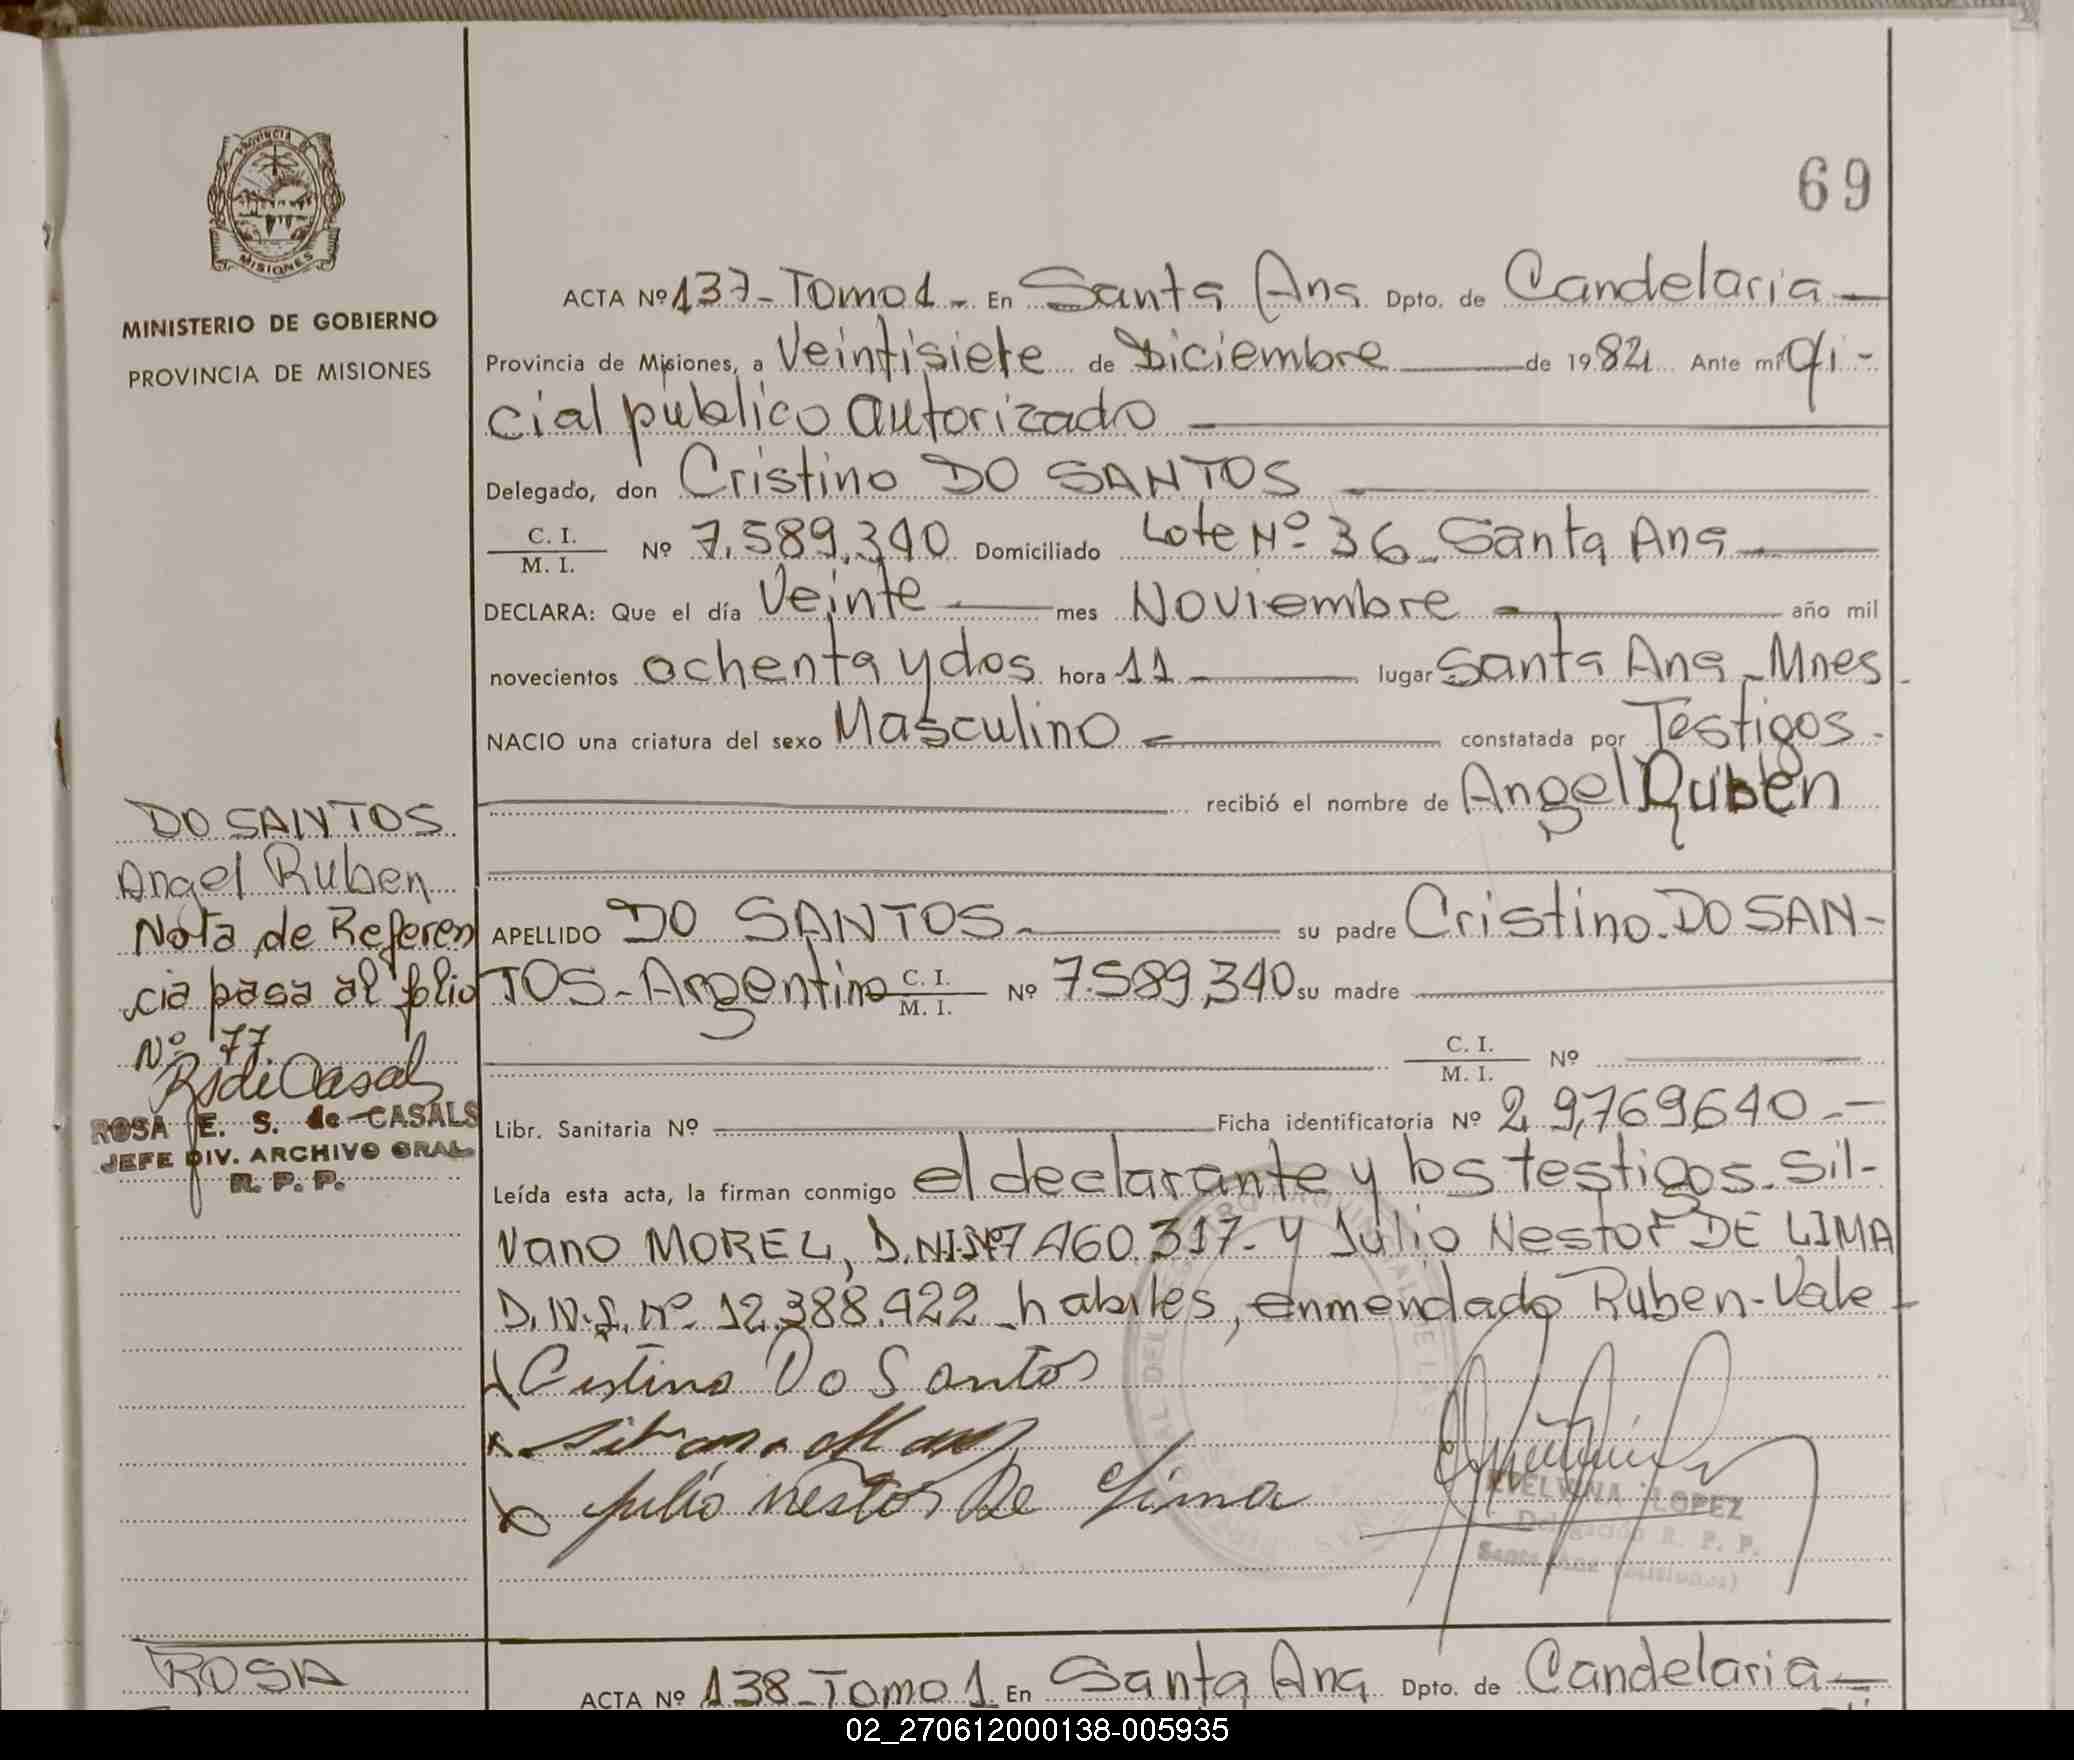 PROVINCIA DE
MISIONES
MINISTERIO DE GOBIERNO
PROVINCIA DE MISIONES
69
ACTA Nº 137-Tomo 1- En Santa Ana Dpto. de Candelaria
Provincia de Misiones, a Veintisiete de Diciembre de 1982 Ante mí Ofi-
cial público autorizado
Delegado, don Cristino DO SANTOS
C. I.
M. I. Nº 7.589.340 Domiciliado Lote Nº 36 Santa Ana
DECLARA: Que el día Veinte mes Noviembre año mil
novecientos ochenta y dos hora 11 lugar Santa Ana - Mnes
NACIO una criatura del sexo Masculino constatada por Testigos.
recibió el nombre de Angel Ruben
DO SANTOS
Angel Ruben
Nota de Referen
cia pasa al folio
Nº 77.
ROSA E. S. de CASALS
JEFE DIV. ARCHIVO GRAL.
R. P. P.
APELLIDO DO SANTOS su padre Cristino DO SAN-
TOS - Argentino C. I.
M. I. Nº 7.589.340 su madre
C. I.
M. I. Nº
Libr. Sanitaria Nº Ficha identificatoria Nº 29,769,640.-
Leída esta acta, la firman conmigo el declarante y los testigos. Sil-
vano MOREL, D.N.I.Nº 7.460.317- y Julio Nestor DE LIMA
D.N.I. Nº 12.388.422 habiles, enmendado Ruben-Vale
Cristino Do Santos
Julio Nestor De Lima
EVELINA LOPEZ
Delegación R. P. P.
Santa Ana (Misiones)
ROSA
ACTA Nº 138-Tomo 1 En Santa Ana Dpto. de Candelaria
02_270612000138-005935